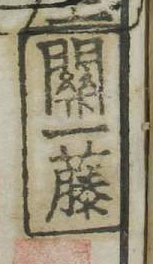 關一藤